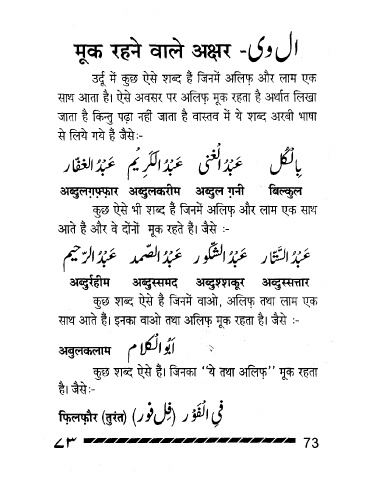 मूक रहने वाले अक्षर - ال وی
उर्दू में कुछ ऐसे शब्द हैं जिनमें अलिफ़ और लाम एक
साथ आता है। ऐसे अवसर पर अलिफ़ मूक रहता है अर्थात लिखा
जाता है किन्तु पढ़ा नहीं जाता है वास्तव में ये शब्द अरबी भाषा
से लिये गये हैं जैसेः-
بِالْکُل عَبْدُ الْغَنی عَبْدُ الْکَرِیْم عَبْدُ الغفّار
अब्दुलग़फ़्फ़ार अब्दुलकरीम अब्दुल ग़नी बिल्कुल
कुछ ऐसे भी शब्द हैं जिनमें अलिफ़ और लाम एक साथ
आते हैं और वे दोंनों मूक रहते हैं। जैसे :-
عَبْدُ السَّتّار عَبْدُ الشّکُور عَبْدُ الصّمد عَبْدُ الرّحیم
अब्दुर्रहीम अब्दुस्समद अब्दुश्शकूर अब्दुस्सत्तार
कुछ शब्द ऐसे हैं जिनमें वाओ, अलिफ़ तथा लाम एक
साथ आते हैं। इनका वाओ तथा अलिफ़ मूक रहता है। जैसे :-
अबुलकलाम اَبُو الْکلام
कुछ शब्द ऐसे हैं। जिनका ‘‘ये तथा अलिफ़’’ मूक रहता
है। जैसेः-
फ़िलफ़ौर (तुरंत) فِی الْفَوْر (فِل فور)
۷۳ 73